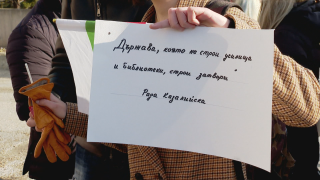 Държава, която не строи училища
и библиотеки, строи затвори
Рада Казалийска